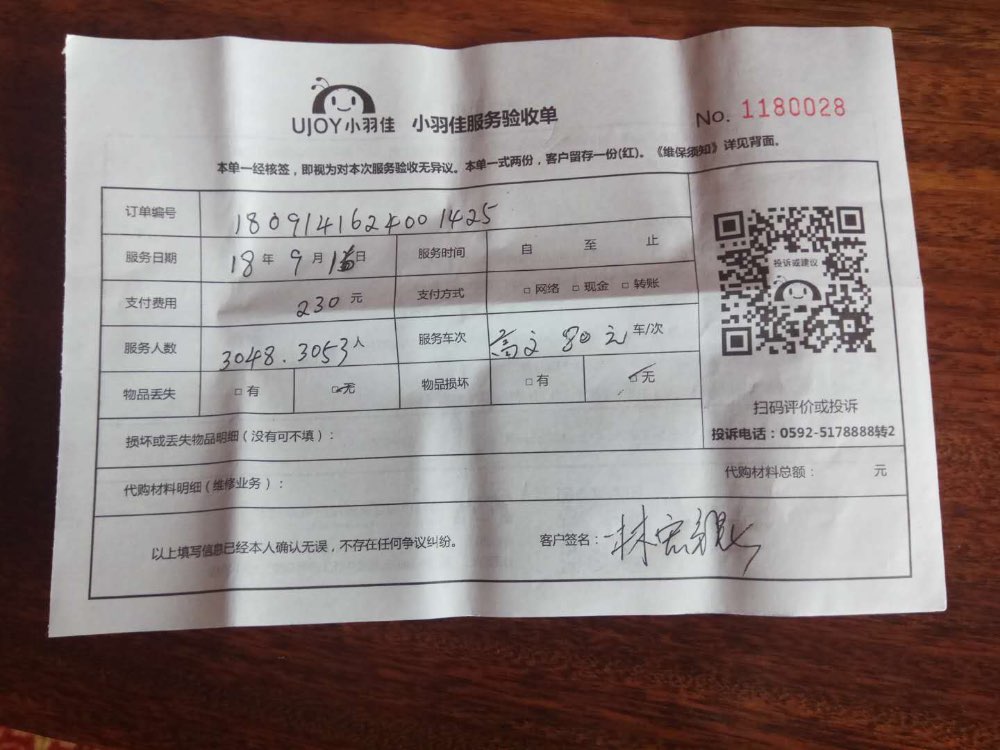 UJOY小羽佳 小羽佳服务验收单 No. 1180028
本单一经核签，即视为对本次服务验收无异议。本单一式两份，客户留存一份(红)。《维保须知》详见背面。
订单编号 1809141624001425
服务日期 18年9月 日 服务时间 自 至 止
支付费用 230元 支付方式 □网络 □现金 □转账
服务人数 3048.3053人 服务车次 80元车/次
物品丢失 □有 □无 物品损坏 □有 □无
损坏或丢失物品明细（没有可不填）：
代购材料明细（维修业务）： 代购材料总额： 元
以上填写信息已经本人确认无误，不存在任何争议纠纷。 客户签名：林宏
投诉或建议
扫码评价或投诉
投诉电话：0592-5178888转2